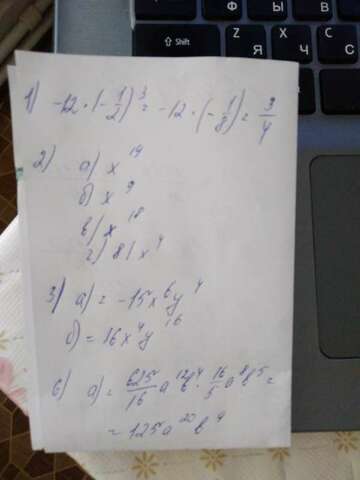 Shift
Я
Ч
С
Z
X
C
1) -12 · (-1/2)³ = -12 · (-1/8) = 3/4
2) а) x¹⁹
б) x⁹
в) x¹⁸
г) 81x⁴
3) а) = -15x⁶y⁴
б) = 16x⁴y¹⁶
6) а) = 625/16 a¹²b⁴ · 16/5 a⁸b⁵ =
= 125a²⁰b⁹